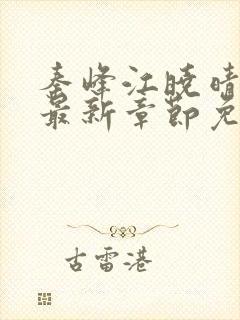 秦峰江晓晴
最新章节免
古雷港